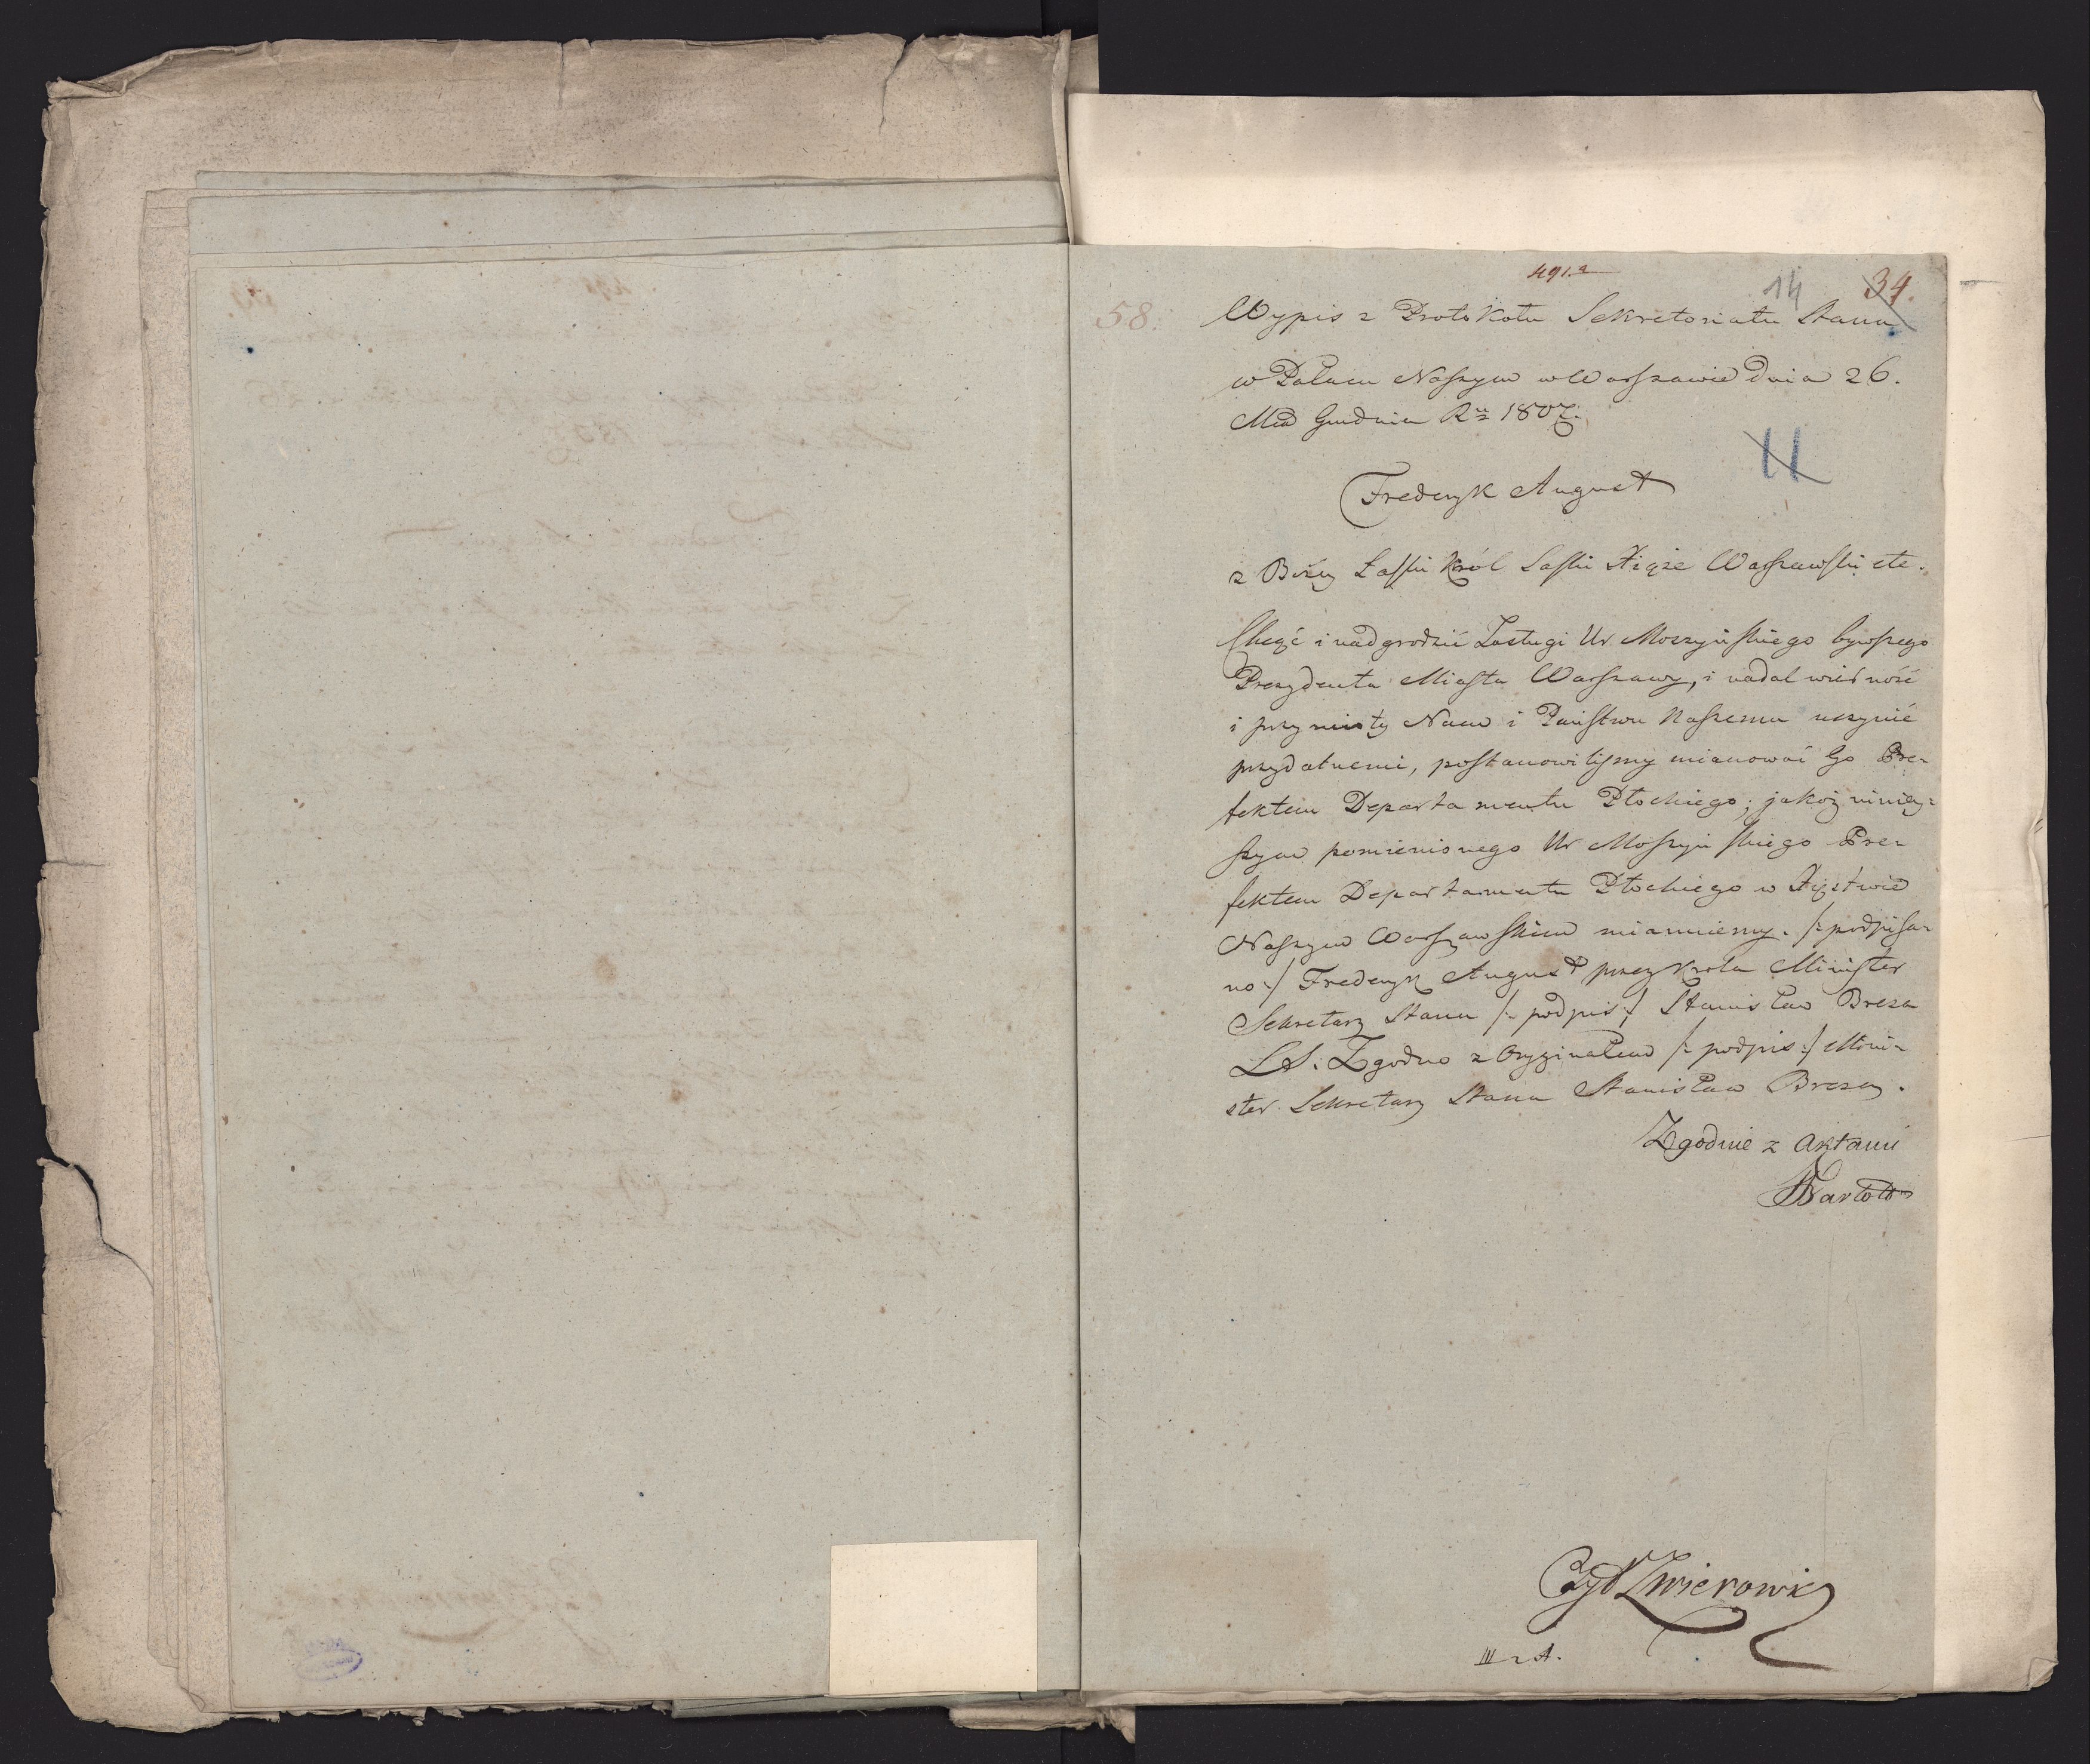 491.a
14
34.
58.
Wypis z Protokołu Sekretoriatu Stanu
w Pałacu Naszym w Warszawie Dnia 26.
Mca Grudnia R 1807.
11
Frederyk August
z Bożey Łaski Król Saski Xiąże Warszawski etc.
Chcąc i nadgrodzić Zasługi Ur. Moszyńskiego bywszego
Prezydenta Miasta Warszawy, i nadal wierność
i przymioty Nam i Państwu Naszemu uczynić
przydatnemi, postanowiliśmy mianować Go Pre-
fektem Departamentu Płockiego; jakoż niniey-
szym pomienionego Ur Moszyńskiego Pre-
fektem Departamentu Płockiego w Xięstwie
Naszym Warszawskim mianuiemy. /: podpisa-
no :/ Frederyk August przez Krola Minister
Sekretarz Stanu /: podpis :/ Stanisław Breza
L.S. Zgodno z Oryginałem /: podpis :/ Mini-
ster Sekretarz Stanu Stanisław Breza.
Zgodnie z Aktami
Czyt Zwierowicz
III z A.